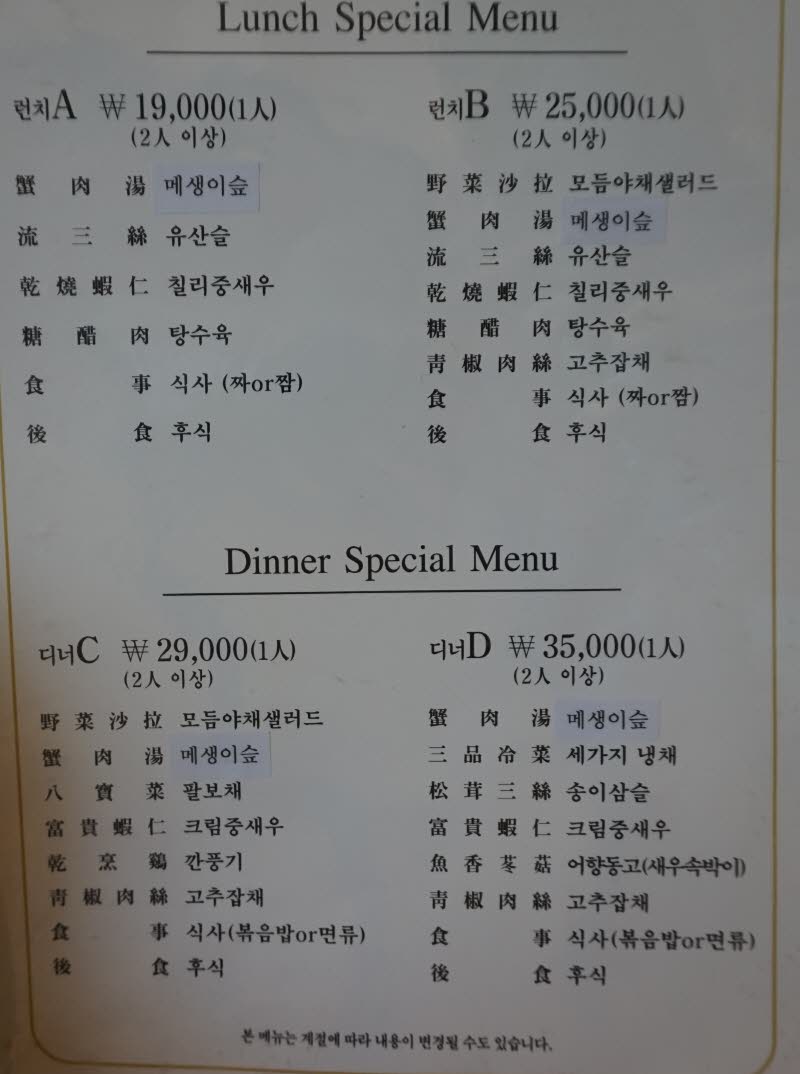 Lunch Special Menu
런치A ₩ 19,000(1人)
(2人 이상)
蟹肉湯 메생이슾
流三絲 유산슬
乾燒蝦仁 칠리중새우
糖醋肉 탕수육
食事 식사 (짜or짬)
後食 후식
런치B ₩ 25,000(1人)
(2人 이상)
野菜沙拉 모듬야채샐러드
蟹肉湯 메생이슾
流三絲 유산슬
乾燒蝦仁 칠리중새우
糖醋肉 탕수육
靑椒肉絲 고추잡채
食事 식사 (짜or짬)
後食 후식
Dinner Special Menu
디너C ₩ 29,000(1人)
(2人 이상)
野菜沙拉 모듬야채샐러드
蟹肉湯 메생이슾
八寶菜 팔보채
富貴蝦仁 크림중새우
乾烹鷄 깐풍기
靑椒肉絲 고추잡채
食事 식사(볶음밥or면류)
後食 후식
디너D ₩ 35,000(1人)
(2人 이상)
蟹肉湯 메생이슾
三品冷菜 세가지 냉채
松茸三絲 송이삼슬
富貴蝦仁 크림중새우
魚香苳菇 어향동고(새우속박이)
靑椒肉絲 고추잡채
食事 식사(볶음밥or면류)
後食 후식
본 메뉴는 계절에 따라 내용이 변경될 수도 있습니다.